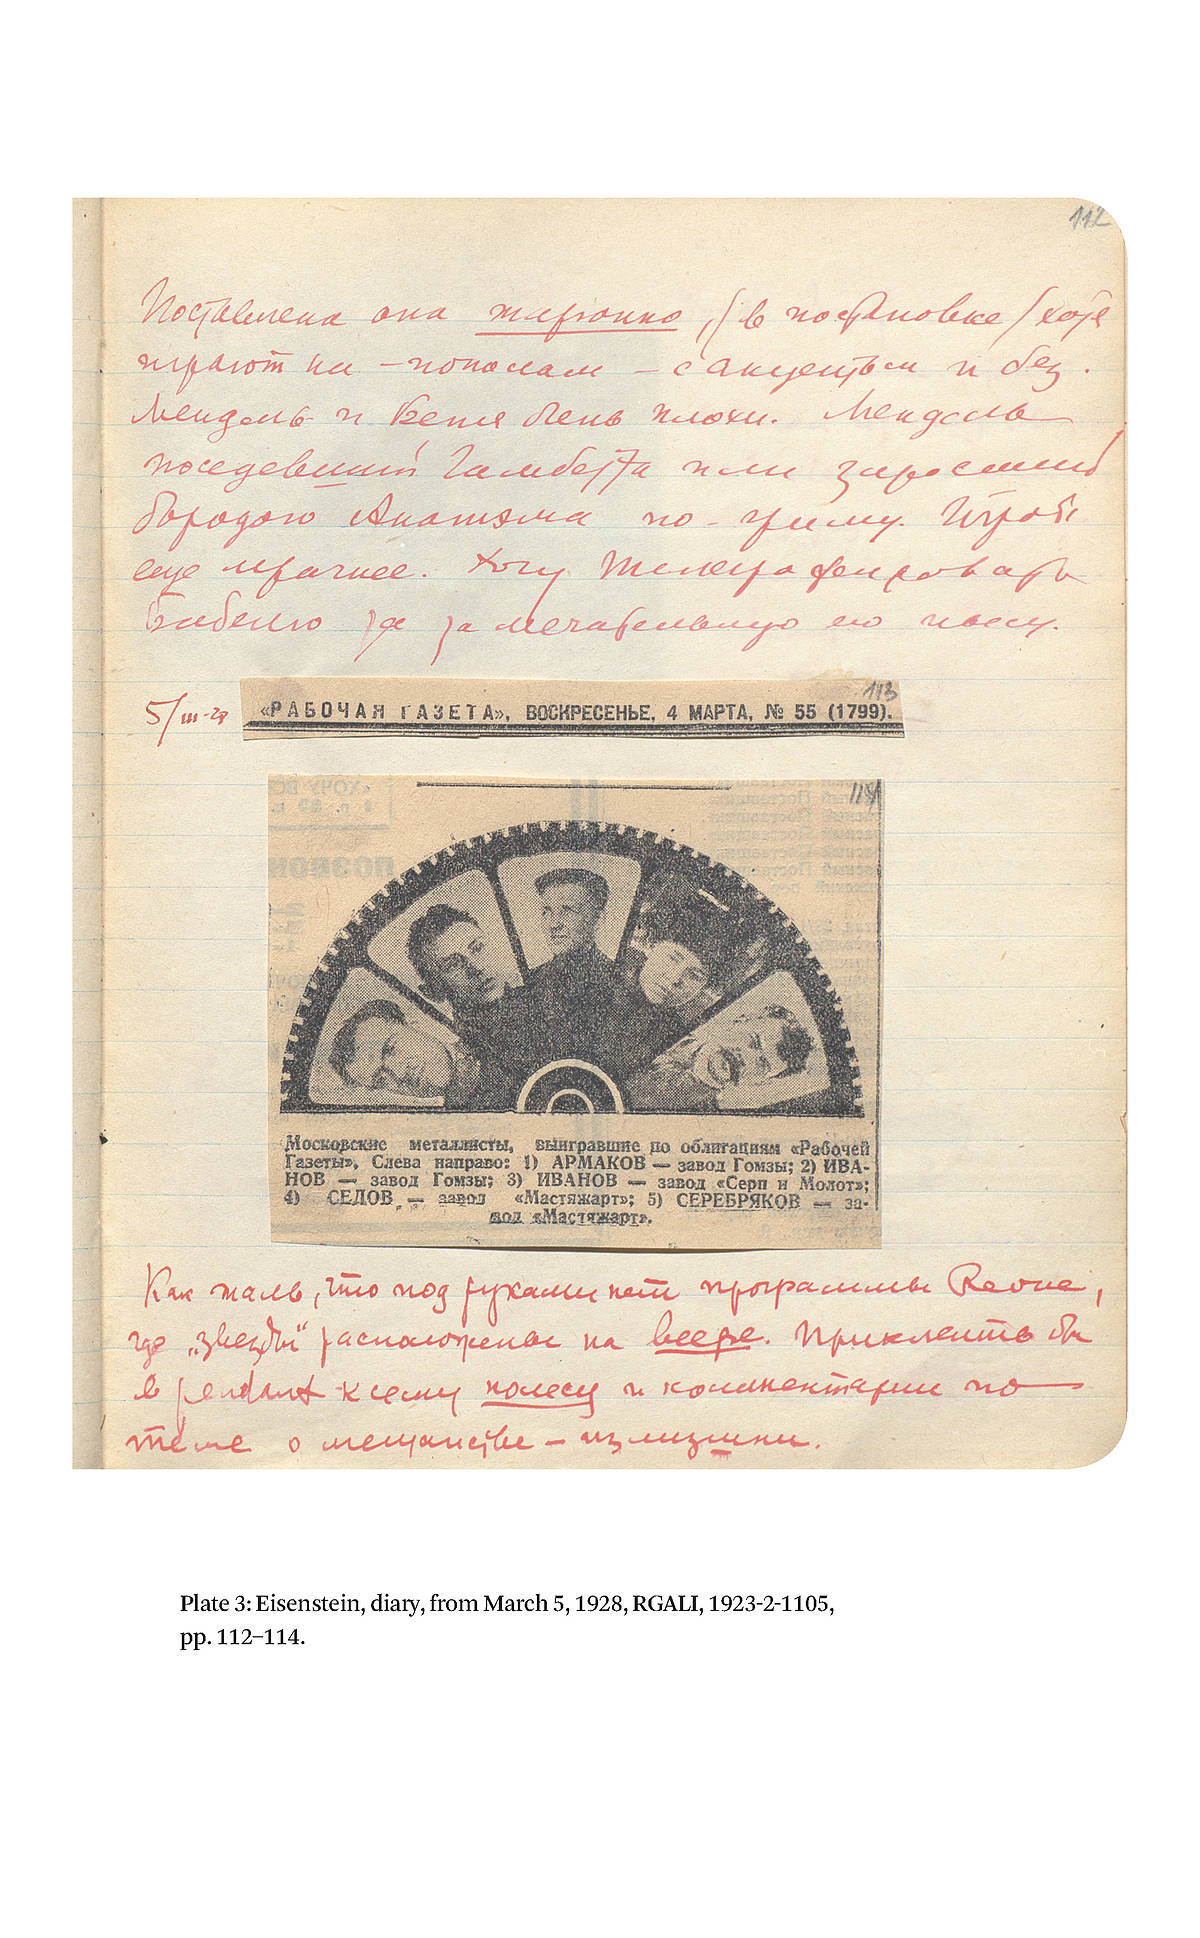 112
Поставлена она жаргонно, (в постановке) хотя
играют на – пополам – с акцентом и без.
Мендель и Беня очень плохи. Мендель
поседевший Гамбетта или заросший
бородою Анатэма по-гриму. Играет
еще мрачнее. Хочу телеграфировать
Бабелю за замечательную его пьесу.
5/III-28
113
«РАБОЧАЯ ГАЗЕТА», ВОСКРЕСЕНЬЕ, 4 МАРТА, № 55 (1799).
114
Московские металлисты, выигравшие по облигациям «Рабочей
Газеты». Слева направо: 1) АРМАКОВ — завод Гомзы; 2) ИВА-
НОВ — завод Гомзы; 3) ИВАНОВ — завод «Серп и Молот»;
4) СЕДОВ — завод «Мастяжарт»; 5) СЕРЕБРЯКОВ — за-
вод «Мастяжарт».
Как жаль, что под руками нет программы Revue,
где „звезды“ расположены на веере. Приклеить бы
в pendant к сему колесу и комментарии по
теме о мещанстве – излишни.
Plate 3: Eisenstein, diary, from March 5, 1928, RGALI, 1923-2-1105,
pp. 112–114.